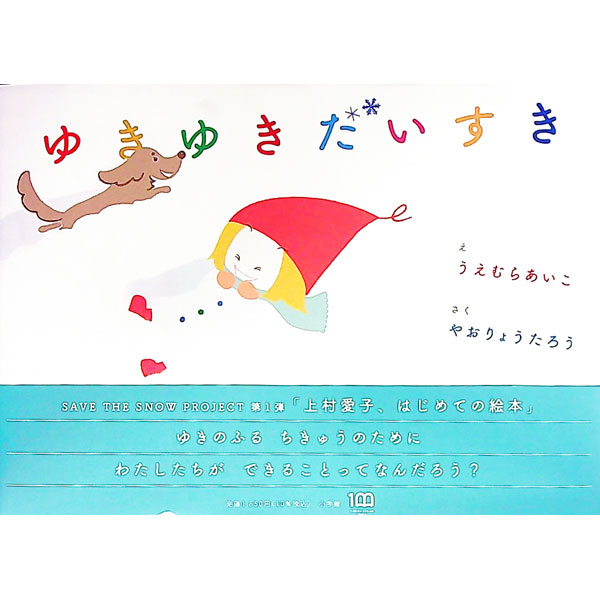 ゆきゆきだいすき
え
うえむらあいこ
さく
やおりょうたろう
SAVE THE SNOW PROJECT 第1弾「上村愛子、はじめての絵本」
ゆきのふる ちきゅうのために
わたしたちが できることってなんだろう?
小学館
100